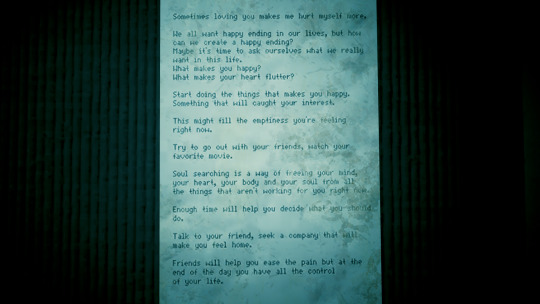 Sometimes loving you makes me hurt myself more.
We all want happy ending in our lives, but how
can we create a happy ending?
Maybe it's time to ask ourselves what we really
want in this life.
What makes you happy?
What makes your heart flutter?
Start doing the things that makes you happy.
Something that will caught your interest.
This might fill the emptiness you're feeling
right now.
Try to go out with your friends, watch your
favorite movie.
Soul searching is a way of freeing your mind,
your heart, your body and your soul from all
the things that aren't working for you right now.
Enough time will help you decide what you should
do.
Talk to your friend, seek a company that will
make you feel home.
Friends will help you ease the pain but at the
end of the day you have all the control
of your life.